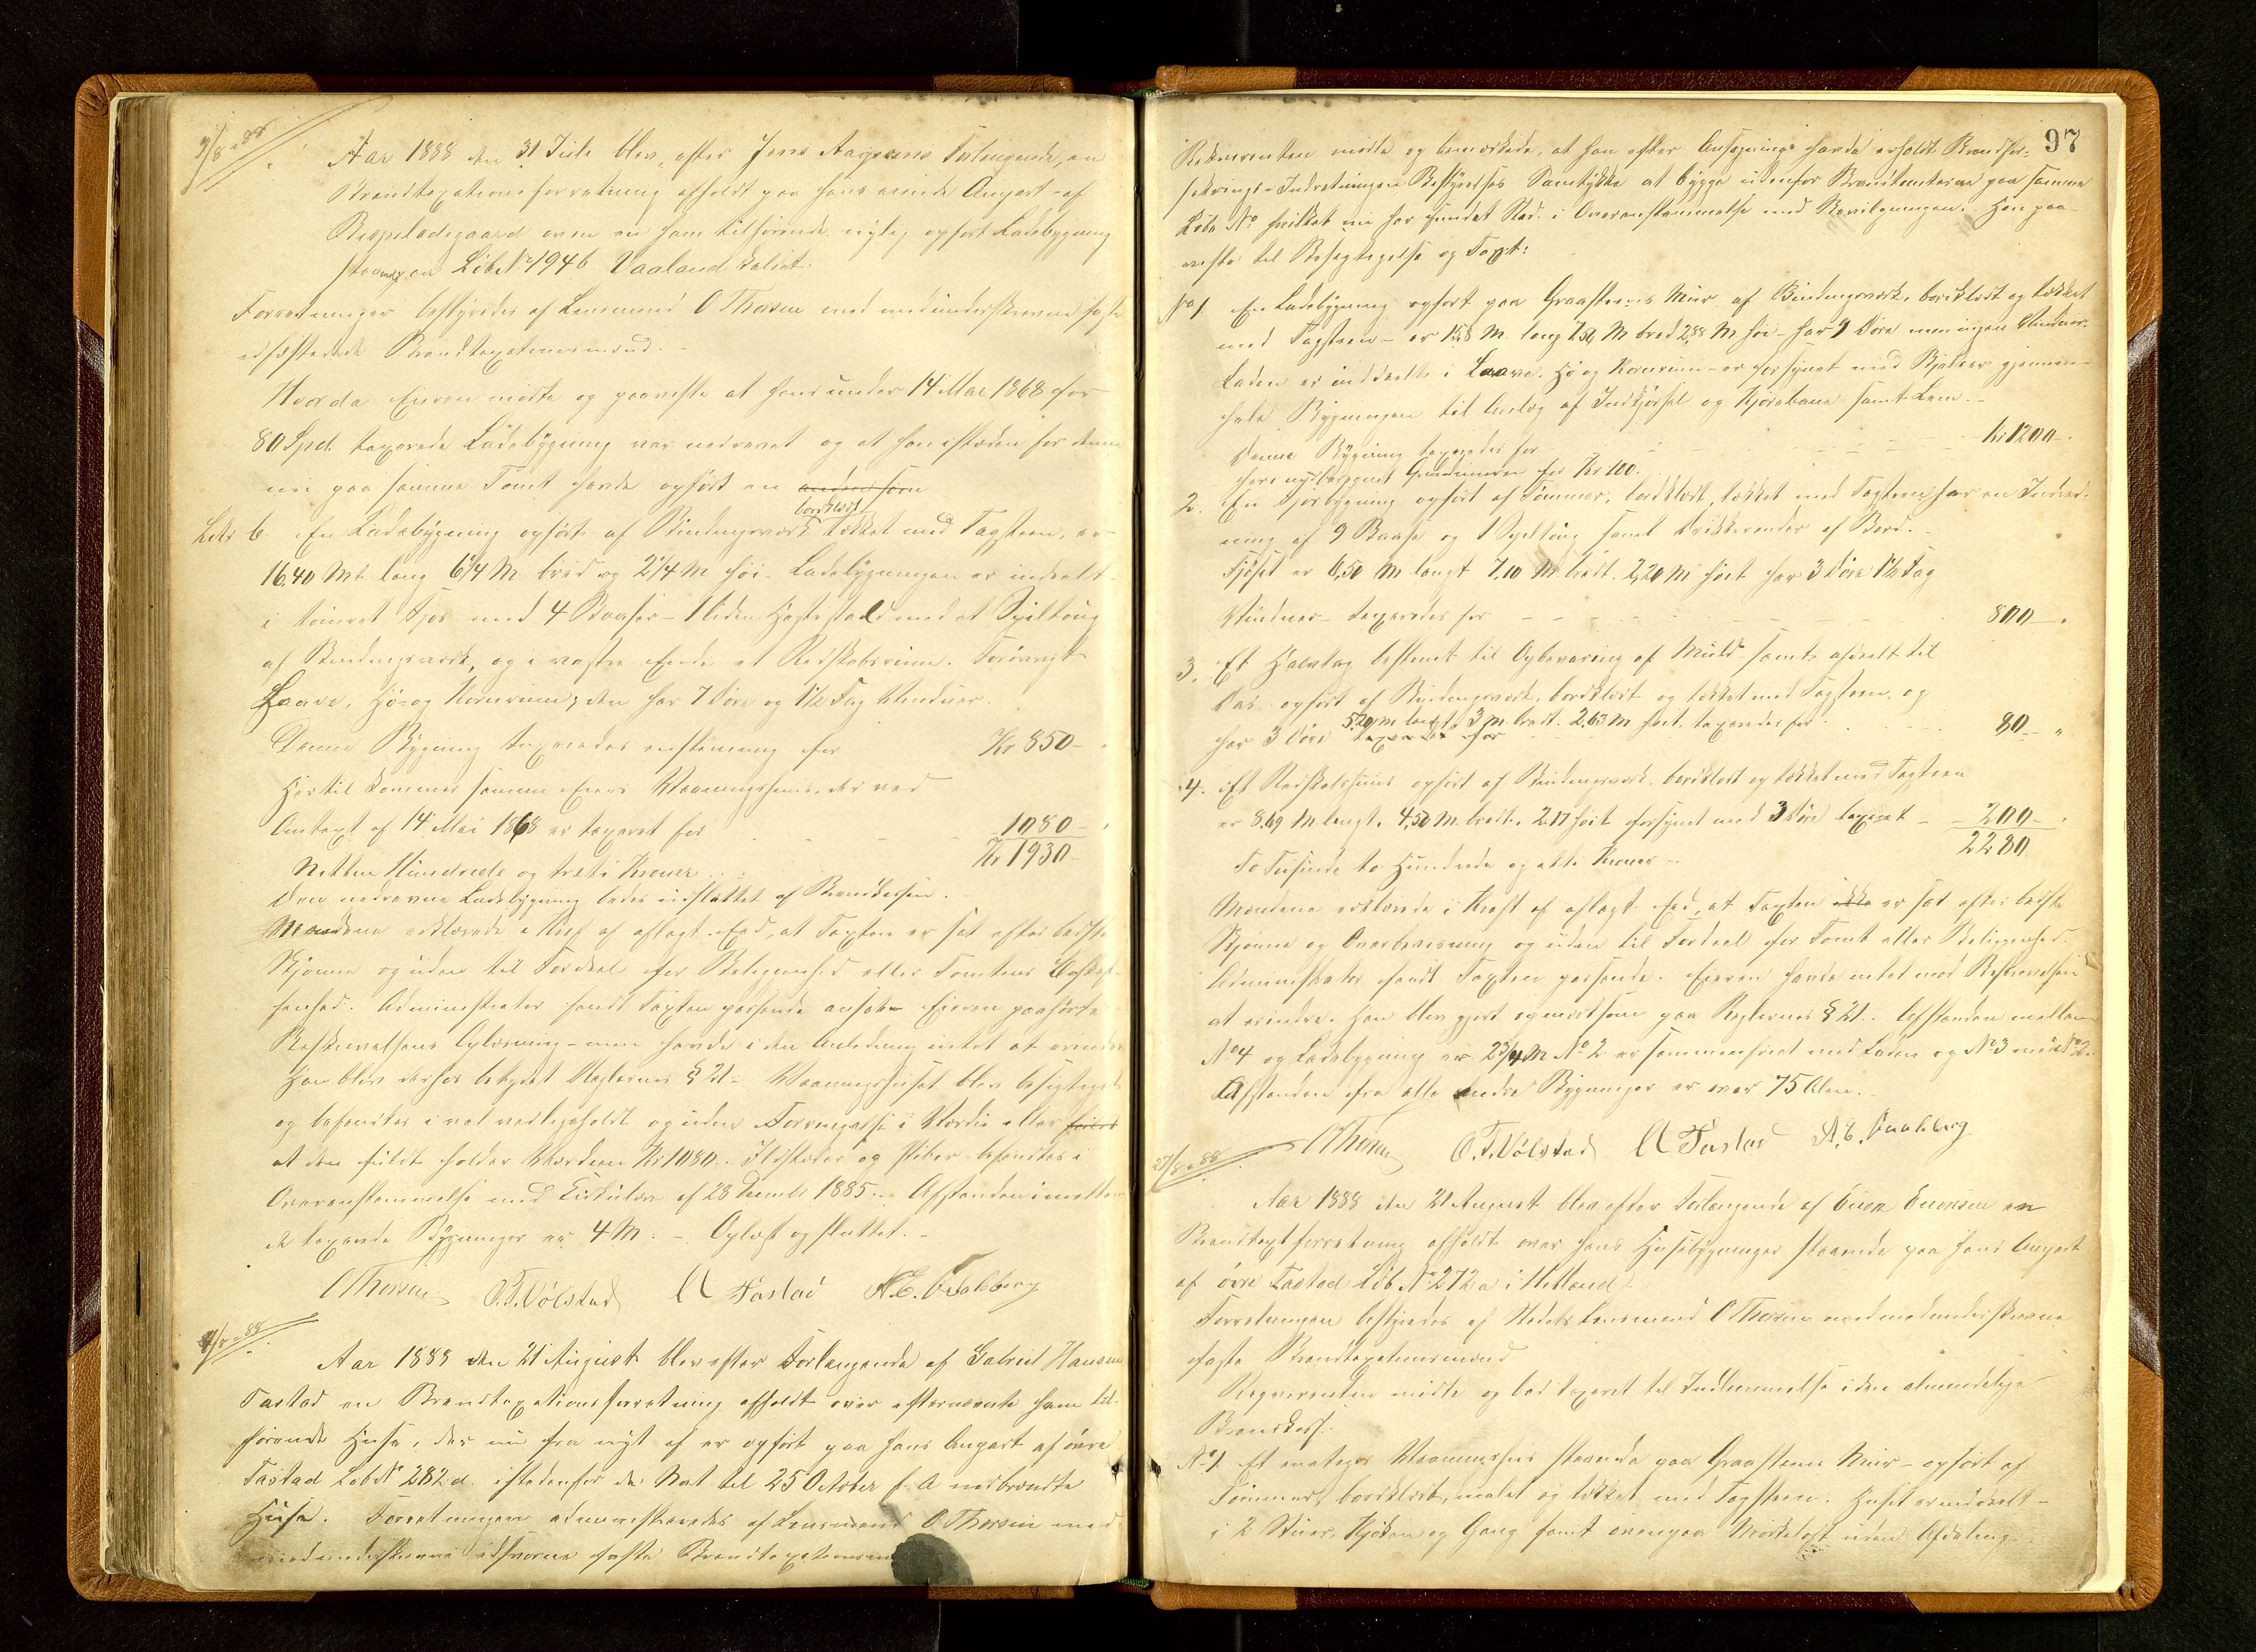 9/8 88
Aar 1888 den 31 Juli blev efter Jens Aagesens Forlangende, en
Brandtaxationsforretning afholdt paa hans eiende Anpart af
Bispeladegaard over en ham tilhørende nylig opført Ladebygning
staaende paa Løb No 1946 Vaaland kaldet.
Forretningen bestyredes af Lensmand O Thorsen med medunderskrevne faste
edfæstede Brandtaxationsmænd. -
Hvorda Eieren mødte og paaviste at hans under 14 Mai 1868 for
80 Spd. taxerede Ladebygning var nedrevet og at han istæden for denne
nu paa samme Tomt havde opført en anden som
bordklædt
Litr b. En Ladebygning opført af Bindingsværk tækket med Tagsteen, er
16,40 Mt. lang 6 1/4 M bred og 2 1/4 M høi. Ladebygningen er inddelt
i tømret Fjøs med 4 Baaser - 1 liden Hestestald med et Spiltoug
af Bindingsværk, og i vestre Ende et Redskabsrum. Forøvrigt
Laave, Hø- og Kornrum; den har 7 Døre og 1 1/2 Fag Vinduer.
Denne Bygning taxeredes enstemmig for Kr 850 -
Hertil kommer samme Eiers Vaaningshuus, der ved
Omtaxt af 14 Mai 1868 er taxeret for - - - 1080 -
Kr 1930 -
Nitten Hundrede og treti Kroner
Den nedrevne Ladebygning bedes udslettet af Brandkassen. -
Mændene erklærede i Kraft af aflagt Eed, at Taxten er sat efter bedste
Skjønne og uden til Fordeel for Beliggenhed eller Tomtens Beskaf-
fenhed. Administrator fandt Taxten passende ansat. Eieren paahørte
Beskrivelsens Oplæsning - men havde i den Anledning intet at erindre
Han blev derfor betydet Reglernes § 21 - Vaaningshuset blev besigtiget
og befandtes i vel vedligeholdt og uden Forringelse i Værdie eller
at den fuldt holder Værdien Kr 1080. - Ildsteder og Piber befandtes i
Overensstemmelse med Cirkulære af 28 1885. - Afstanden imellem
de taxerede Bygninger er 4 M. - Oplæst og sluttet. -
O Thorsen O. T. Vølstad A Tastad A. E. Gralsberg
88
Aar 1888 den 21 August blev efter Forlangende af Gabriel Hansen
Tastad en Brandtaxationsforretning afholdt over efternævnte ham til-
hørende Huse, der nu fra nyt af er opført paa hans Anpart af øvre
Tastad Løb No 282 d. istedenfor de Nat til 25 October f. A nedbrændte
Huse. Forretningen administreredes af Lensmand O Thorsen med
medunderskrevne edsvorne faste Brandtaxationsm
97
Rekvirenten mødte og bemærkede, at han efter Ansøgning havde erholdt Brandfor-
sikrings-Indretningens Bestyrelses Samtykke at bygge udenfor Brandtomterne paa samme
Løbe No hvilket nu har fundet Sted i Overensstemmelse med Bevilgningen. Han paa-
viste til Besigtigelse og Taxt:
No 1 En Ladebygning opført paa Graasteens Muur af Bindingsværk, bordklædt og tækket
med Tagsteen - er 15,8 M lang 7,50 M bred 2,88 M høi - har 9 Døre men ingen Vinduer.
Laden er inddeelt i Laave, Hø og Kornrum - er forsynet med Bjelker gjennem
hele Bygningen til Anlæg af Indkjørsel og Kjørebane samt Lem. -
Denne Bygning taxeredes for - - - - - Kr 1200 -
heri nyberegnet Grundmuren for Kr 100.
2. En Fjøsbygning opført af Tømmer, bordklædt, tækket med Tagsteen har en Indred-
ning af 9 Baase og 1 Spiltoug samt Drikkerender af Bord. -
Fjøset er 6,50 M langt 7,10 M bredt. 2,20 M høit har 3 Døre 1 1/2 Fag
Vinduer - taxeredes for - - - - - 800 -
3. Et Halvtag bestemt til Opbevaring af Muld samt afdeelt til
Das. opført af Bindingsværk, bordklædt og tækket med Tagsteen, og
5,20 m langt. 3 m. bredt. 2,63 m høit. taxeredes for
har 3 Døre taxeredes for - - - 80 - "
4. Et Redskabshuus opført af Bindingsværk. bordklædt og tækket med Tagsteen
er 8,69 M langt. 4,50 M. bredt. 2,17 høit forsynet med 3 Døre taxeret - - 200 -
2280
To Tusinde to Hundrede og otti Kroner -
Mændene erklærede i Kraft af aflagt Eed, at Taxten ikke er sat efter bedste
Skjønne og Overbevisning og uden til Fordeel for Tomt eller Beliggenhed.
Administrator fandt Taxten passende. Eieren havde intet mod Beskrivelsen
at erindre. Han blev gjort opmærksom paa Reglernes § 21. Afstanden mellem
No 4 og Ladebygning er 23 1/4 M No 2 er sammenføiet med Laden og No 3 med No 2.
Afstanden fra alle andre Bygninger er over 75 Alen. -
O Thorsen O. T. Vølstad A Tastad A. E. Gralsberg
27/8 88
Aar 1888 den 21 August blev efter Forlangende af Enok Enoksen en
Brandtaxtforretning afholdt over hans Husebygninger staaende paa hans Anpart
af øvre Tastad Løb No 272 a i Hetland.
Forretningen bestyredes af Stedets Lensmand O Thorsen med medunderskrevne
faste Brandtaxationsmænd
Reqvirenten mødte og bad taxeret til Indlemmelse i den almindelige
Brandkasse:
No 1 Et enetages Vaaningshus staaende paa Graasteens Muur - opført af
Tømmer, bordklædt, malet og tækket med Tagsteen. Huset er inddeelt -
i 2 Stuer, Kjøkken og Gang samt ovenpaa Mørkeloft uden Afdeling -